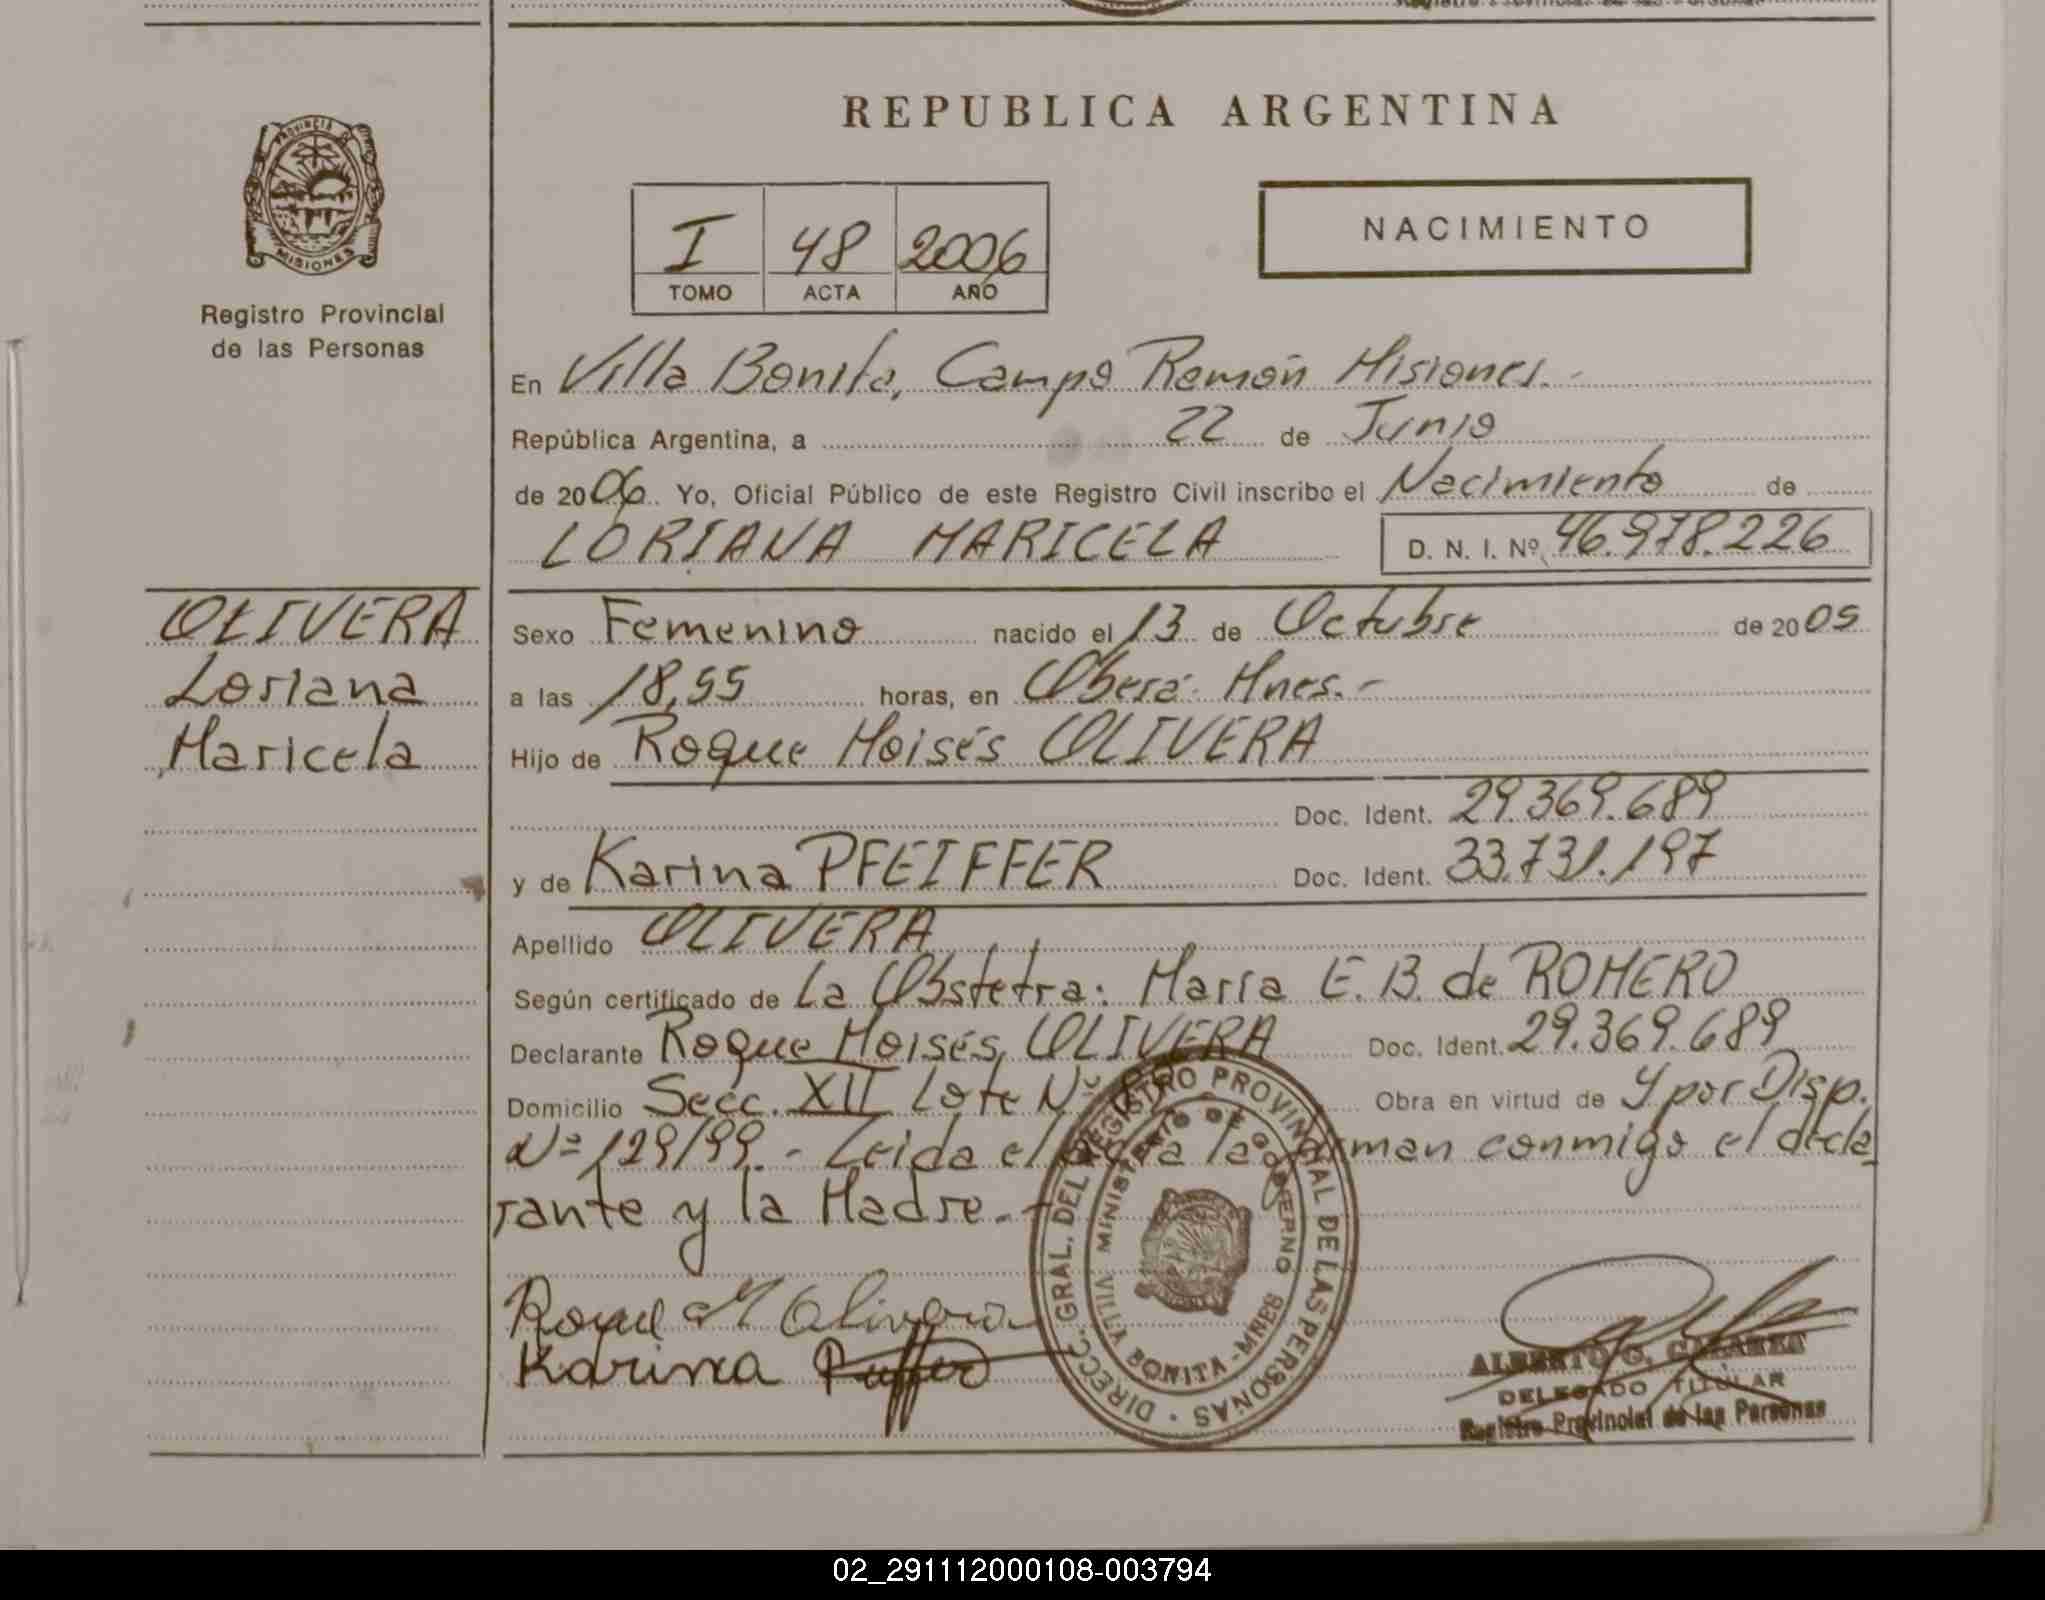 REPUBLICA ARGENTINA
PROVINCIA D
MISIONES
Registro Provincial
de las Personas
I 48 2006
TOMO ACTA AÑO
NACIMIENTO
En Villa Bonita, Campo Ramón Misiones.-
República Argentina, a 22 de Junio
de 2006. Yo, Oficial Público de este Registro Civil inscribo el Nacimiento de
LORIANA MARICELA D. N. I. Nº 46.978.226
OLIVERA
Loriana
Maricela
Sexo Femenino nacido el 13 de Octubre de 2005
a las 18,55 horas, en Oberá - Mnes.-
Hijo de Roque Moisés OLIVERA
Doc. Ident. 29.369.689
y de Karina PFEIFFER Doc. Ident. 33.731.197
Apellido OLIVERA
Según certificado de La Obstetra: María E. B. de ROMERO
Declarante Roque Moisés OLIVERA Doc. Ident. 29.369.689
Domicilio Secc. XII Lote Nº Obra en virtud de Y por Disp.
Nº 129/99.- Leida el acta la firman conmigo el decla
rante y la Madre.-
Roque M Olivera
Karina
DIRECC. GRAL. DEL REGISTRO PROVINCIAL DE LAS PERSONAS
MINISTERIO DE GOBIERNO
VILLA BONITA - MNES
ALBERTO G.
DELEGADO TITULAR
Registro Provincial de las Personas
02_291112000108-003794